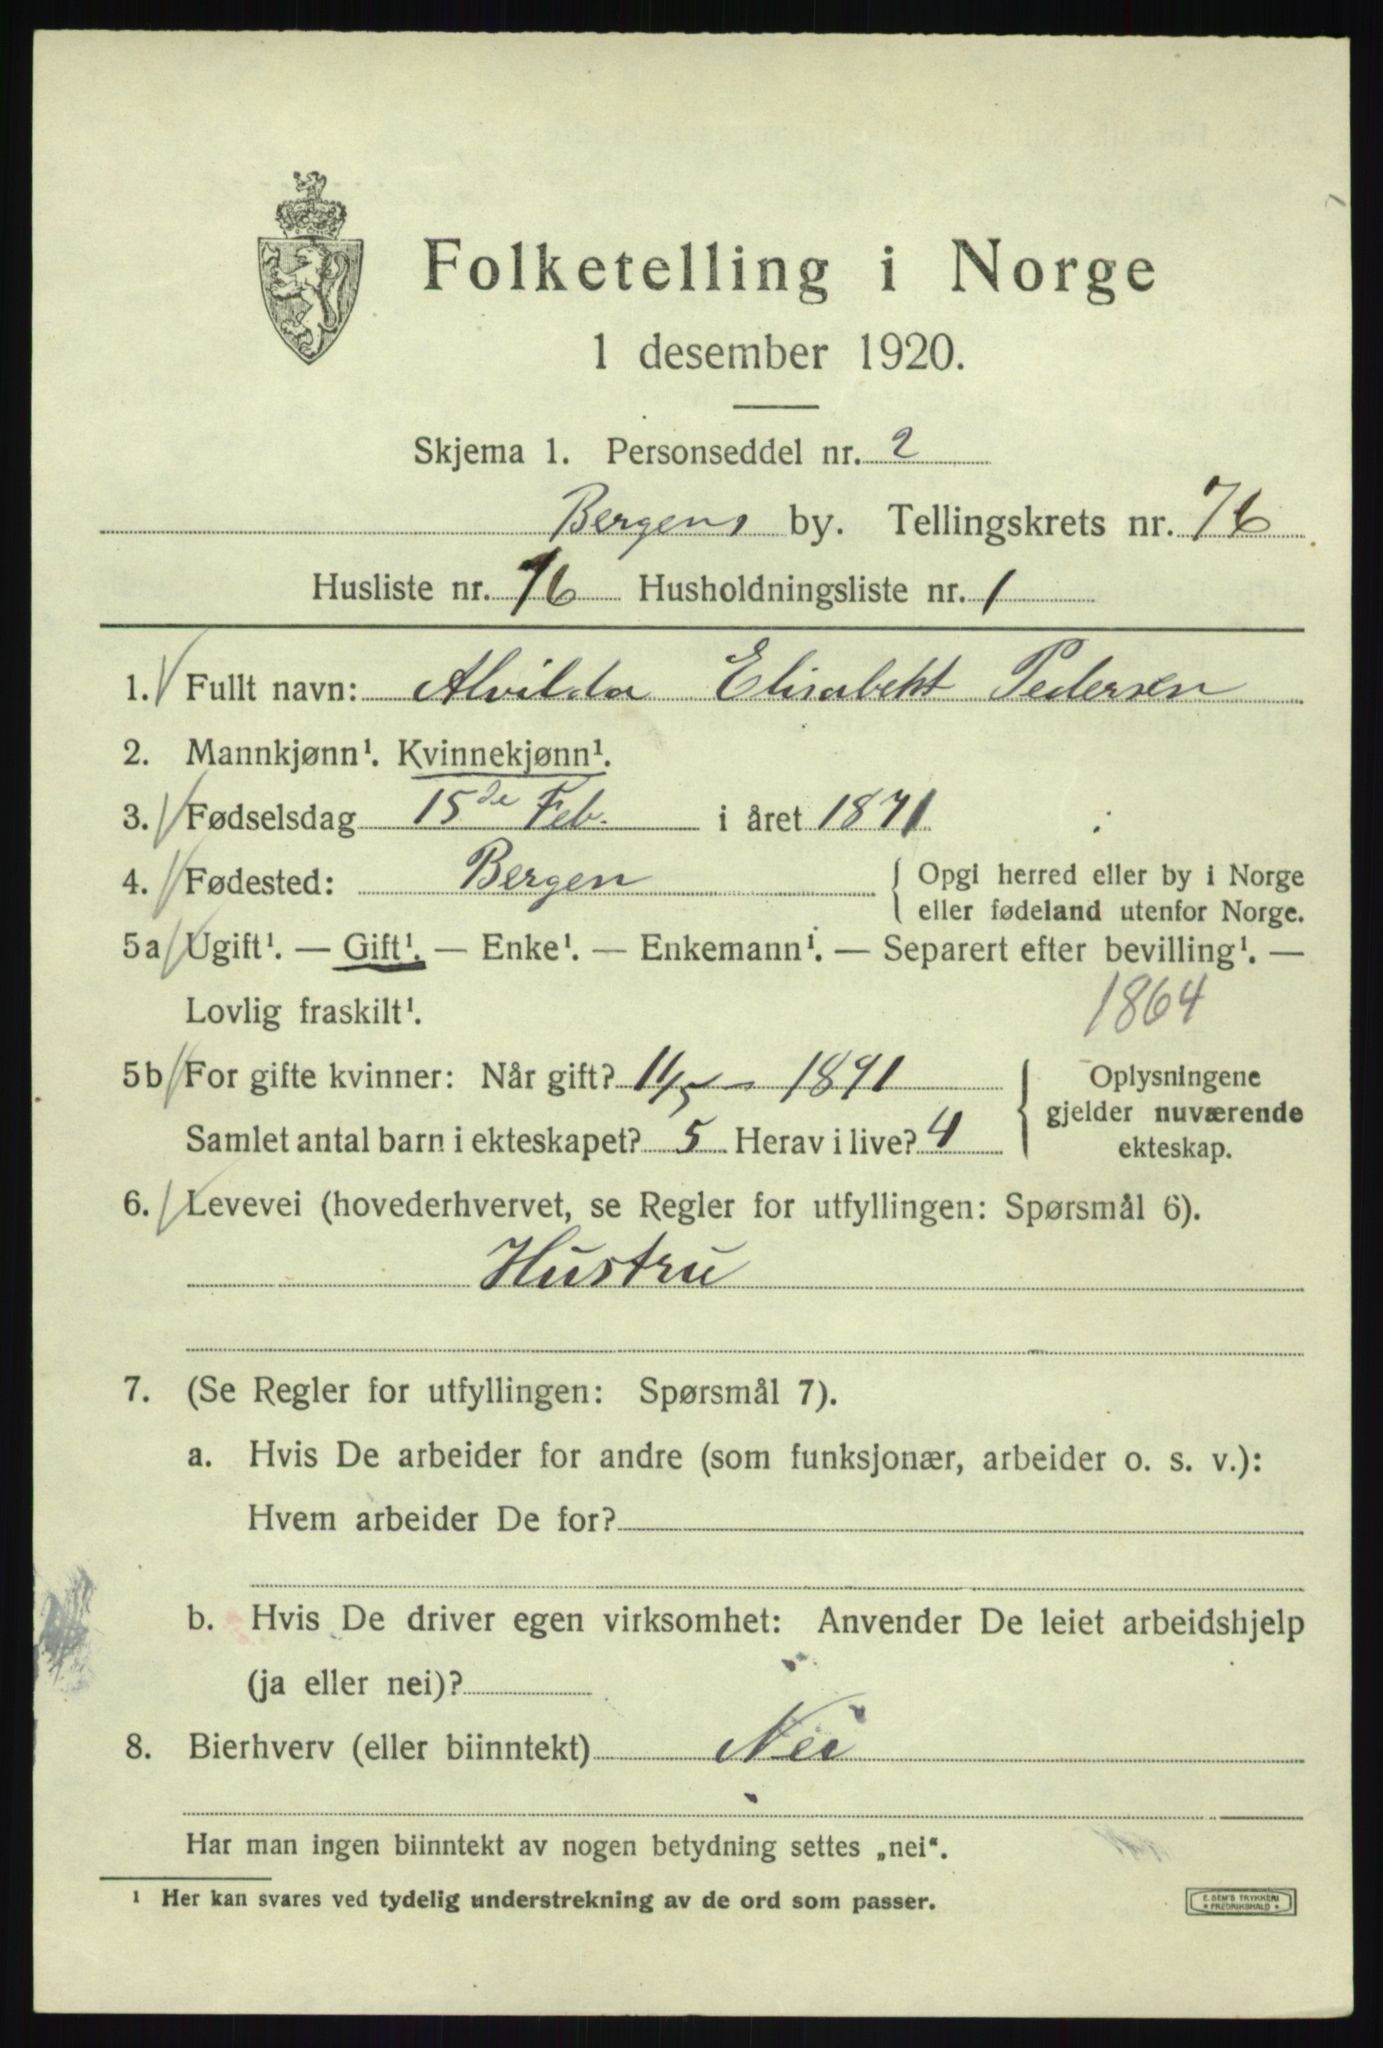 Folketelling i Norge
1 desember 1920.
Skjema 1. Personseddel nr. 2
Bergens by. Tellingskrets nr. 76
Husliste nr. 16 Husholdningsliste nr. 1
1. Fullt navn: Alvilda Elisabeht Pedersen
2. Mannkjønn¹. Kvinnekjønn¹.
3. Fødselsdag 15de Feb. i året 1871
4. Fødested: Bergen { Opgi herred eller by i Norge
eller fødeland utenfor Norge.
5a Ugift¹. — Gift¹. — Enke¹. — Enkemann¹. — Separert efter bevilling¹. —
Lovlig fraskilt¹. 1864
5b For gifte kvinner: Når gift? 11/5 – 1891 { Oplysningene
gjelder nuværende
Samlet antal barn i ekteskapet? 5 Herav i live? 4 ekteskap.
6. Levevei (hovederhvervet, se Regler for utfyllingen: Spørsmål 6).
Hustru
7. (Se Regler for utfyllingen: Spørsmål 7).
a. Hvis De arbeider for andre (som funksjonær, arbeider o. s. v.):
Hvem arbeider De for?
b. Hvis De driver egen virksomhet: Anvender De leiet arbeidshjelp
(ja eller nei)?
8. Bierhverv (eller biinntekt) Nei
Har man ingen biinntekt av nogen betydning settes „nei“.
¹ Her kan svares ved tydelig understrekning av de ord som passer.
E. SEM'S TRYKKERI
* FREDRIKSHALD *